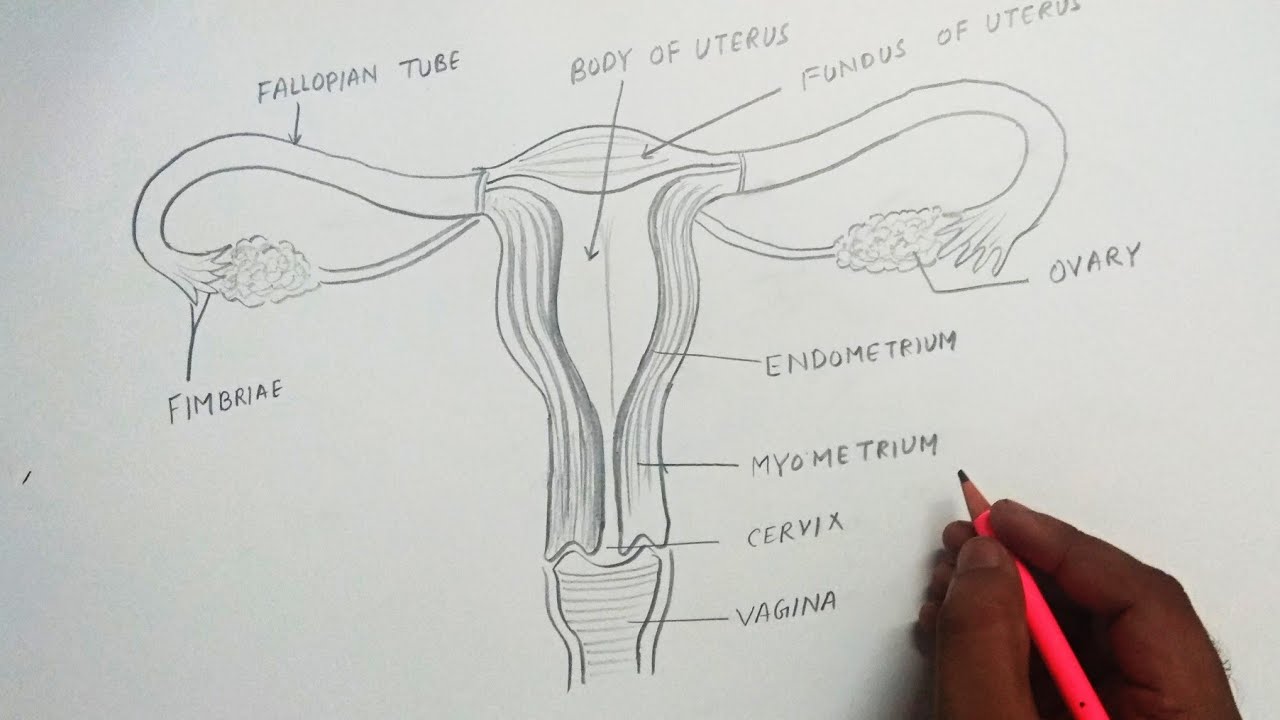 FALLOPIAN TUBE
BODY OF UTERUS
FUNDUS OF UTERUS
OVARY
FIMBRIAE
ENDOMETRIUM
MYOMETRIUM
CERVIX
VAGINA